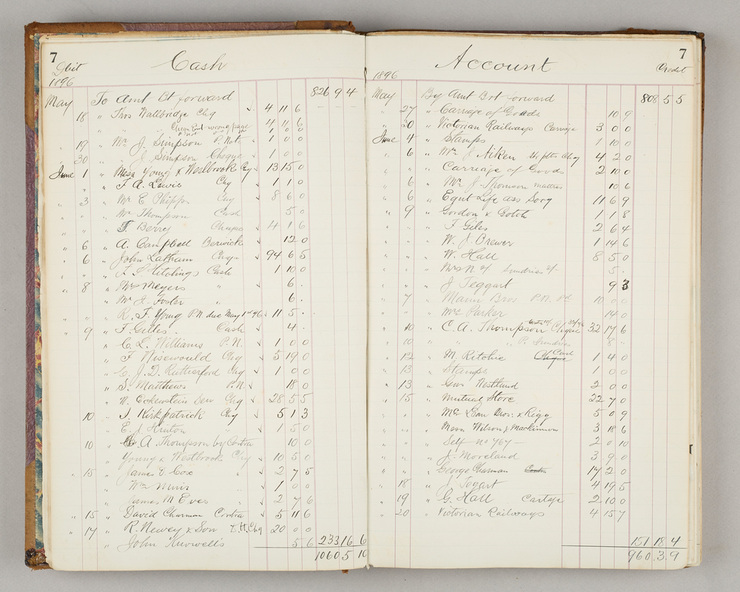 7
Debit
Cash
1896
826 9 4
May To Amt Bt forward
18 " Thos Wallbridge Chq 4 11 6
4 11 6
1 0 0
19 " Mr J. Simpson P. Not. 1 0 0
30 " J. Simpson Cheque 1 0 0
June 1 " Mess Young & Westbrook Chq 13 15 0
" " F A. Lewis Chq 1 1 0
" 3 " Mr E Phipps Chq 8 6 0
" " Mr Thompson Cash 5 0
" " Berry Cheques 4 1 6
" 6 " A. Campbell Berwick 12 0
" 6 " John Latham Chq 94 6 5
" " Hitchings Cash 1 10 0
" 8 " Mrs Meyers " 6 -
" " Mr J. Foster " 6 -
" " R. F. Young P.N due May 1st 96 11 5 -
" 9 " F. Giles Cash 4 -
" " C. L. Williams P.N. 1 0 0
" " F Wisewould Chq 5 19 0
" " C. J. D. Rutherford Chq 1 0 0
" " S. Matthews P.N. 18 0
" " Bros Chq 28 5 5
" 10 " J. Kirkpatrick Chq 5 1 3
" " E. J. Hinton 1 5 0
" 10 " A Thompson by Contra 10 0
" " Young & Westbrook Chq 10 5 0
" 15 " James & Coe 2 7 5
" " Wm Muir 1 0 0
" " James M Eves 2 7 6
" 15 " David Charman Contra 5 11 6
" 17 " R. Newey & Son Chq 20 0 0
" " John Knowells 5 6 233 16 6
1060 5 10
7
Account
Credit
1896
808 5 5
May By Amt Bot forward
" 27 " Carriage of Goods 10 9
" 30 " Victorian Railways Carriage 3 0 0
June 4 " Stamps 1 10 0
" 6 " Mr J Aitken Chq 4 2 0
" " Carriage of Goods 2 10 0
" 6 " Mr J Thomson 10 6
" 6 " Equit Life Ass Socy 11 6 9
" 9 " Gordon & Gotch 1 1 8
" " F Giles 2 6 4
" " W. J. Brewer 1 14 6
" " W. Hall 8 5 0
" " Sundries 5 -
" " J Taggart 9 3
" 7 " Bros P.N. 10 0 0
" " Mr Parker 14 0
" 10 " C. A. Thompson Cheque 32 17 6
" 10 " Sundries 8 -
" 12 " M. Ritchie Cash 1 4 0
" 13 " Stamps 1 0 0
" 13 " Geo Westland 2 0 0
" 15 " Mutual Store 22 7 0
" " McEwan Bros & Rigg 5 0 9
" " Mess Wilson & Mackinnon 3 18 6
" " Self No 767 - 2 0 10
" " J. Moreland 3 9 0
" " George Charman Contra 17 2 0
" 18 " J. Taggart 4 19 5
" 19 " G. Hall Cartage 2 10 0
" 20 " Victorian Railways 4 15 7
151 18 4
960 3 9